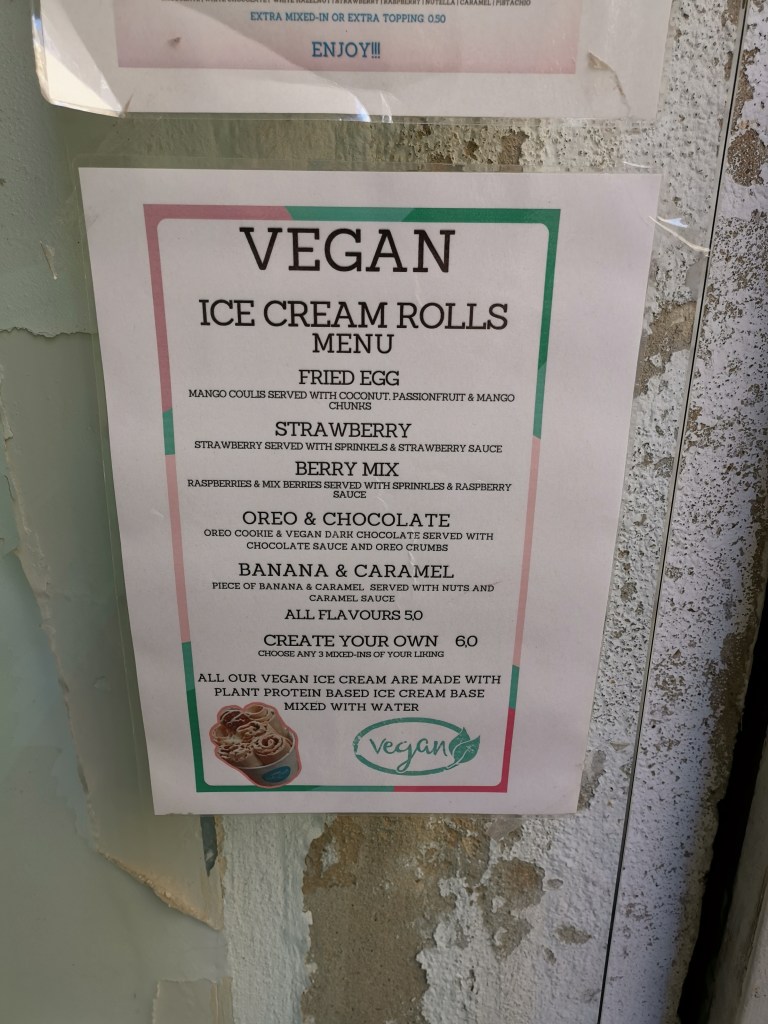 STRAWBERRY | RASPBERRY | NUTELLA | CARAMEL | PISTACHIO
EXTRA MIXED-IN OR EXTRA TOPPING 0.50
ENJOY!!!
VEGAN
ICE CREAM ROLLS
MENU
FRIED EGG
MANGO COULIS SERVED WITH COCONUT, PASSIONFRUIT & MANGO
CHUNKS
STRAWBERRY
STRAWBERRY SERVED WITH SPRINKELS & STRAWBERRY SAUCE
BERRY MIX
RASPBERRIES & MIX BERRIES SERVED WITH SPRINKLES & RASPBERRY
SAUCE
OREO & CHOCOLATE
OREO COOKIE & VEGAN DARK CHOCOLATE SERVED WITH
CHOCOLATE SAUCE AND OREO CRUMBS
BANANA & CARAMEL
PIECE OF BANANA & CARAMEL SERVED WITH NUTS AND
CARAMEL SAUCE
ALL FLAVOURS 5,0
CREATE YOUR OWN 6,0
CHOOSE ANY 3 MIXED-INS OF YOUR LIKING
ALL OUR VEGAN ICE CREAM ARE MADE WITH
PLANT PROTEIN BASED ICE CREAM BASE
MIXED WITH WATER
vegan